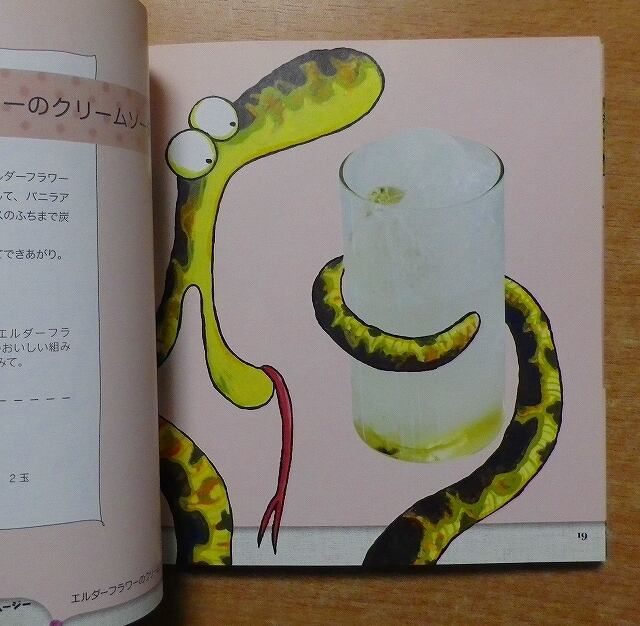 ーのクリームソー
ルダーフラワー
して、バニラア
スのふちまで炭
てできあがり。
エルダーフラ
おいしい組み
みて。
2玉
エルダーフラワーのクリー
ムージー
19